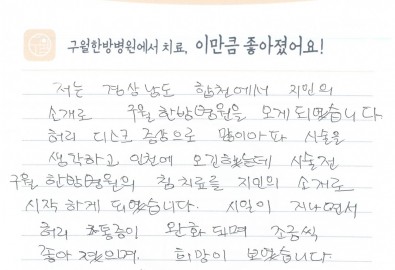 구월한방병원에서 치료, 이만큼 좋아졌어요!
저는 경상남도 합천에서 지인의
소개로 구월한방병원을 오게 되었습니다
허리 디스크 증상으로 많이아파 시술을
생각하고 인천에 오긴했는데 시술전
구월 한방병원의 침치료를 지인의 소개로
시작하게 되었습니다. 시일이 지나면서
허리 통증이 완화 되며 조금씩
좋아졌으며. 희망이 보였습니다